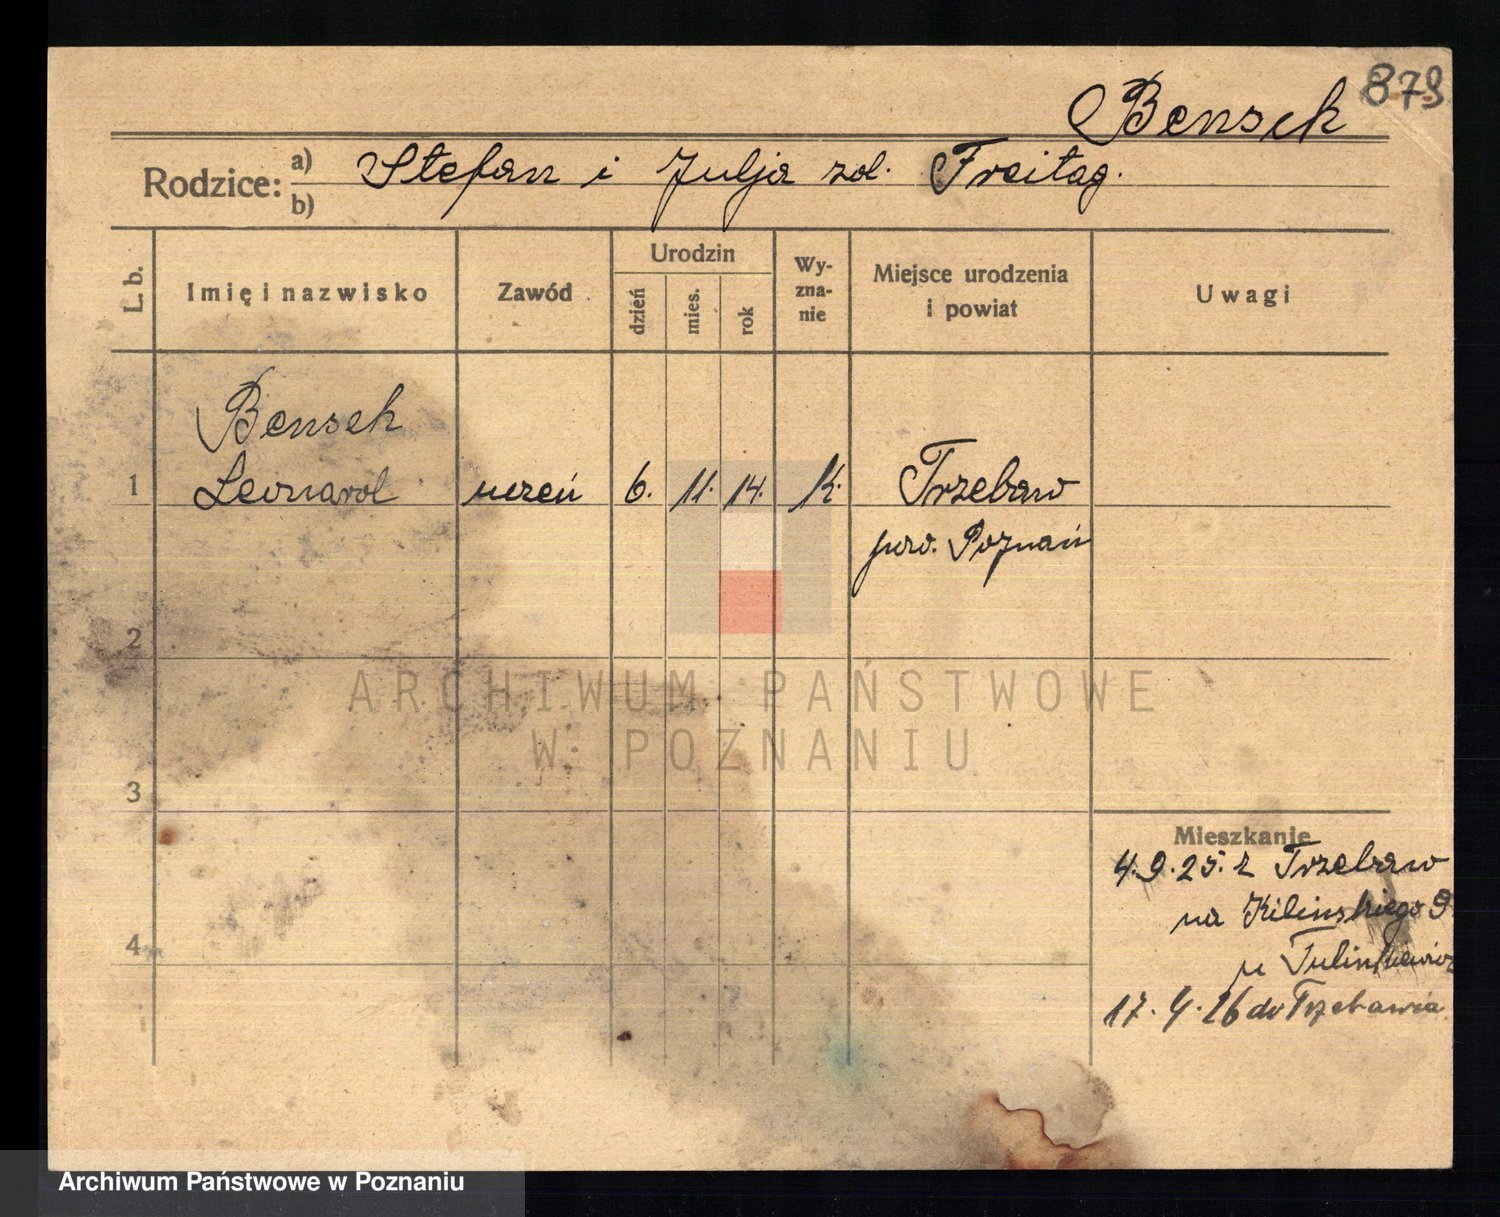 879
Bensch
Rodzice: a) Stefan i Julja zd. Freitag.
b)
L. b. Imię i nazwisko Zawód Urodzin dzień mies. rok Wy-zna-nie Miejsce urodzenia i powiat Uwagi
Bensch
1 Leonard uczeń 6. 11. 14. k. Trzebaw
pow. Poznań
2
3
Mieszkanie
4.9.25. z Trzebaw
na Kilińskiego 9
4
u Tulinkiewicz
17. 4. 26 do Trzebawia
ARCHIWUM PAŃSTWOWE
W POZNANIU
Archiwum Państwowe w Poznaniu